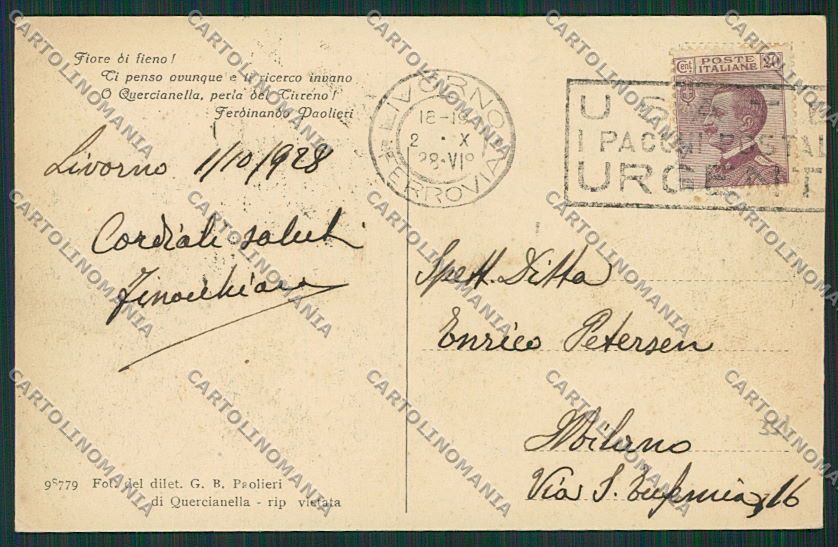 Fiore di fieno!
Ti penso ovunque e ti ricerco invano
O Quercianella, perla del Tirreno!
Ferdinando Paolieri
Livorno 1/10/928
Cordiali saluti
Finocchiaro
98779 Fot. del dilet. G. B. Paolieri
di Quercianella - rip vietata
LIVORNO
18-19
2 · X
28·VI
FERROVIA
I PACCHI POSTAL
URGENT
Cent. POSTE ITALIANE 20
Spett. Ditta
Enrico Petersen
Milano
Via S. Eufemia, 16
CARTOLINOMANIA